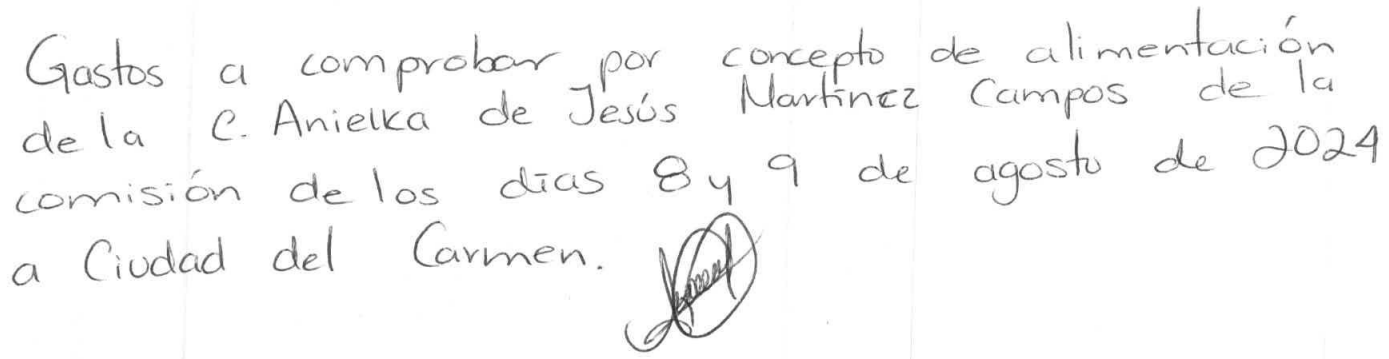 Gastos a comprobar por concepto de alimentación
de la C. Anielka de Jesús Martínez Campos de la
comisión de los días 8 y 9 de agosto de 2024
a Ciudad del Carmen.